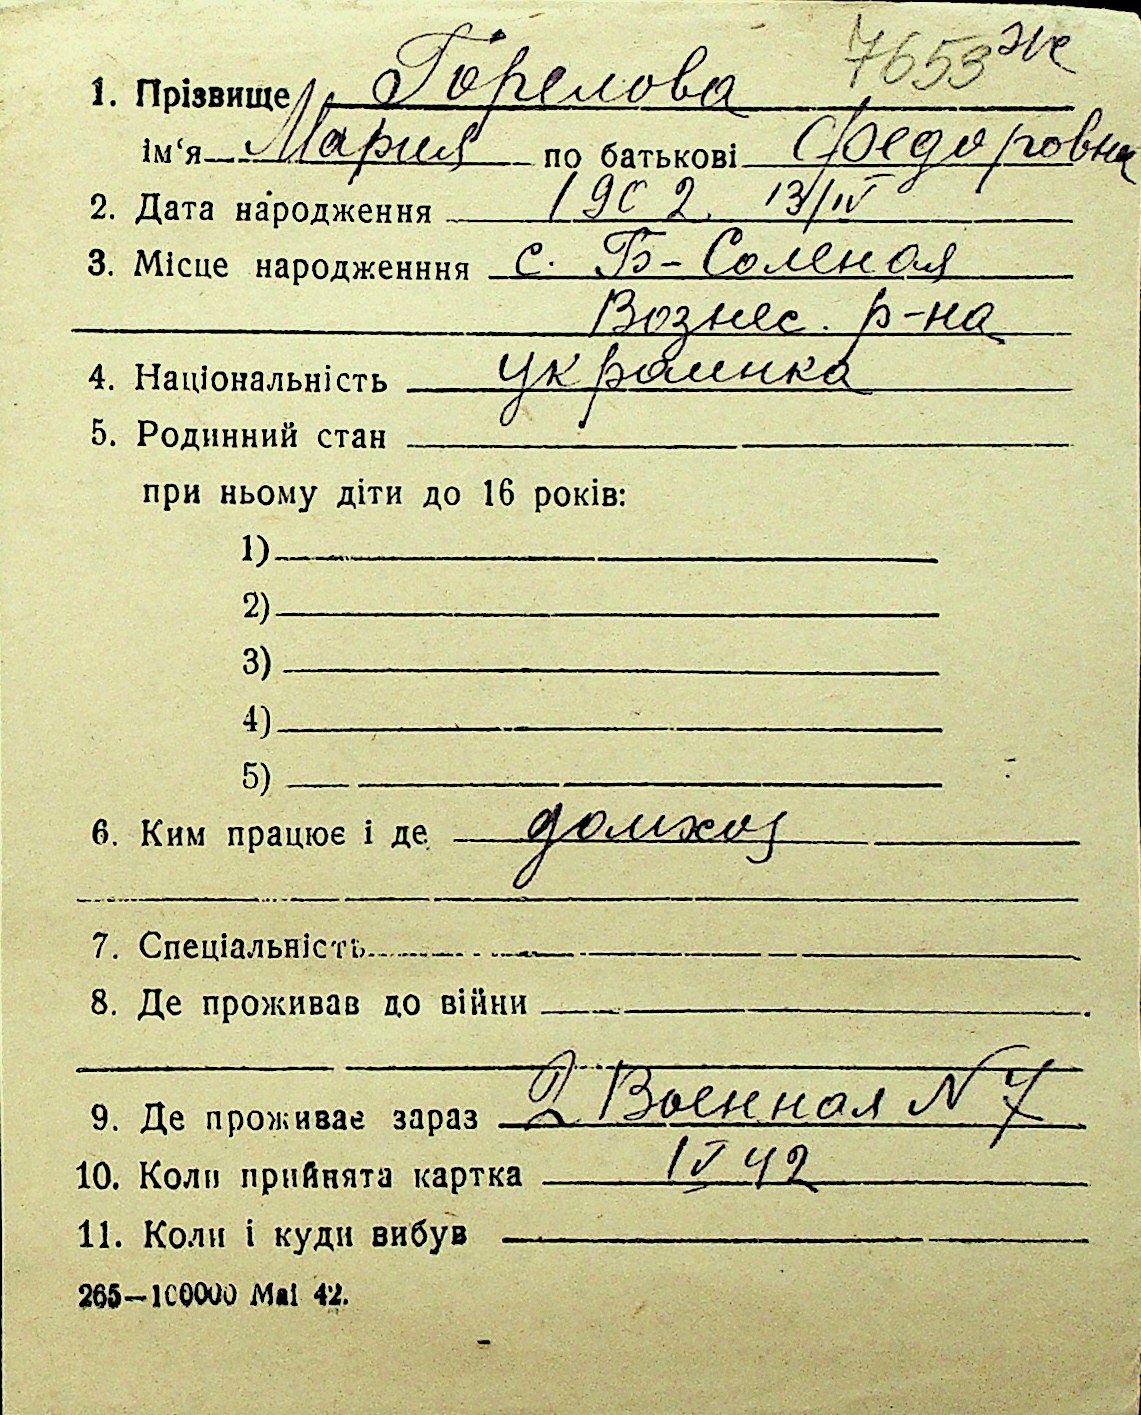 7653 ж
1. Прізвище Горелова
ім‘я Мария по батькові Федоровна
2. Дата народження 1902 13/IV
3. Місце народженння с. Б-Соленая
Вознес. р-на
4. Національність украинка
5. Родинний стан
при ньому діти до 16 років:
1)
2)
3)
4)
5)
6. Ким працює і де домхоз
7. Спеціальність
8. Де проживав до війни
9. Де проживає зараз 2 Военная N 7
10. Коли прийнята картка 1 V 42
11. Коли і куди вибув
265—100000 Mai 42.